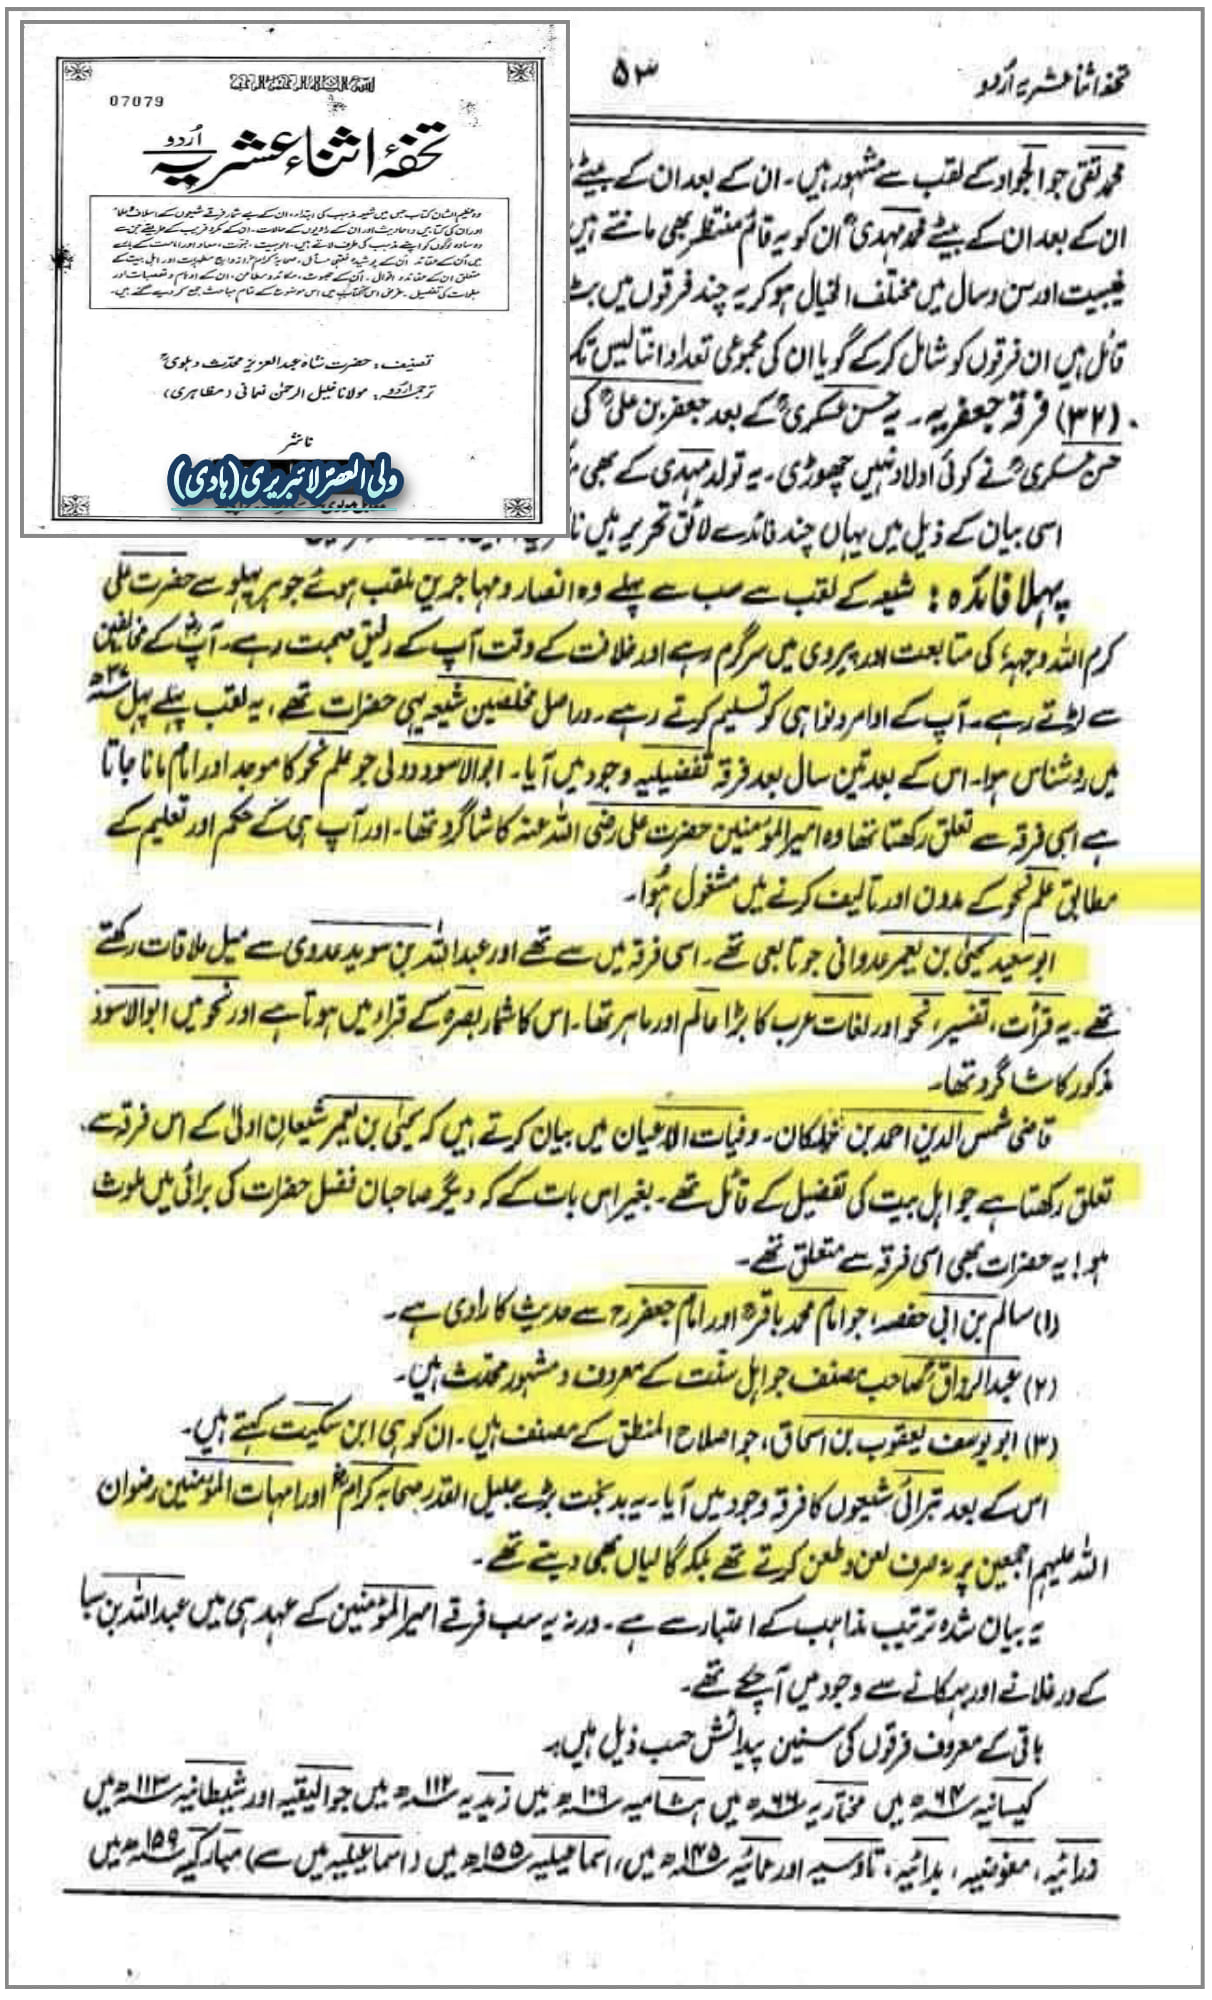 تحفہ اثنا عشریہ اُردو
۵۳
07079
تحفۂ اثناء عشریہ اُردو
وہ عظیم الشان کتاب جس میں شیعہ مذہب کی ابتداء، ان کے بے شمار فرقے شیعوں کے اسلاف و علماء
اور ان کی کتابیں و احادیث اور ان کے راویوں کے حالات۔ ان کے مکر و فریب کے طریقے جن سے
وہ سادہ لوگوں کو اپنے مذہب کی طرف لاتے ہیں۔ الوہیت، نبوت، معاد اور امامت کے بارے
میں اُن کے عقائد۔ اُن کے پوشیدہ فقہی مسائل، صحابہ کرام ازواج مطہرات اور اہل بیت کے
متعلق ان کے عقائد و اقوال۔ اُن کے جھوٹ، مکائد و مطاعن، ان کے اوہام و تعصبات اور
ہفوات کی تفصیل۔ غرض اس کتاب میں اس موضوع کے تمام مباحث جمع کر دیے گئے ہیں۔
تصنیف: حضرت شاہ عبدالعزیز محدث دہلویؒ
ترجمہ اُردو: مولانا خلیل الرحمٰن نعمانی (مظاہری)
ناشر
ولی العصرؑ لائبریری (ہادی)
محمد تقی جو الجواد کے لقب سے مشہور ہیں۔ ان کے بعد ان کے بیٹے
ان کے بعد ان کے بیٹے محمد مہدیؒ ان کو یہ قائم منتظر بھی مانتے ہیں
غیبیت اور سن و سال میں مختلف الخیال ہو کر یہ چند فرقوں میں بٹ
قائل ہیں ان فرقوں کو شامل کر کے گویا ان کی مجموعی تعداد انتالیس تک
(۳۲) فرقہ جعفریہ۔ یہ حسن عسکریؒ کے بعد جعفر بن علیؒ کی
حسن عسکریؒ نے کوئی اولاد نہیں چھوڑی۔ یہ تولد مہدی کے بھی
اسی بیان کے ذیل میں یہاں چند فائدے لائق تحریر ہیں
پہلا فائدہ: شیعہ کے لقب سے سب سے پہلے وہ انصار و مہاجرین ملقب ہوئے جو ہر پہلو سے حضرت علی
کرم اللہ وجہہ، کی متابعت اور پیروی میں سرگرم رہے اور خلافت کے وقت آپ کے رفیق صحبت رہے۔ آپؓ کے مخالفین
سے لڑتے رہے۔ آپ کے اوامر و نواہی کو تسلیم کرتے رہے۔ دراصل مخلصین شیعہ یہی حضرات تھے، یہ لقب پہلے پہل ۳۷ھ
میں روشناس ہوا۔ اس کے بعد تین سال بعد فرقہ تفضیلیہ وجود میں آیا۔ ابوالاسود دولی جو علم نحو کا موجد اور امام مانا جاتا
ہے اسی فرقہ سے تعلق رکھتا تھا وہ امیر المؤمنین حضرت علی رضی اللہ عنہ کا شاگرد تھا۔ اور آپ ہی کے حکم اور تعلیم کے
مطابق علم نحو کے مدون اور تالیف کرنے میں مشغول ہُوا۔
ابو سعید یحییٰ بن یعمر عدوانی جو تابعی تھے۔ اسی فرقہ میں سے تھے اور عبداللہ بن سوید عدوی سے میل ملاقات رکھتے
تھے۔ یہ قرأت، تفسیر، نحو اور لغات عرب کا بڑا عالم اور ماہر تھا۔ اس کا شمار بصرہ کے قراء میں ہوتا ہے اور نحو میں ابوالاسود
مذکور کا شاگرد تھا۔
قاضی شمس الدین احمد بن خلکان۔ وفیات الاعیان میں بیان کرتے ہیں کہ یحییٰ بن یعمر شیعان اولیٰ کے اس فرقہ سے
تعلق رکھتا ہے جو اہل بیت کی تفضیل کے قائل تھے۔ بغیر اس بات کے کہ دیگر صاحبان فضل حضرات کی برائی میں ملوث
ہو! یہ حضرات بھی اسی فرقہ سے متعلق تھے۔
(۱) سالم بن ابی حفصہ، جو امام محمد باقرؒ اور امام جعفرؒ سے حدیث کا راوی ہے۔
(۲) عبدالرزاقؒ صاحب مصنف جو اہل سنت کے معروف و مشہور محدث ہیں۔
(۳) ابو یوسف یعقوب بن اسحاق، جو اصلاح المنطق کے مصنف ہیں۔ ان کو ہی ابن سکیت کہتے ہیں۔
اس کے بعد تبرائی شیعوں کا فرقہ وجود میں آیا۔ یہ بدبخت بڑے جلیل القدر صحابہ کرامؓ اور امہات المؤمنین رضوان
اللہ علیہم اجمعین پر نہ صرف لعن و طعن کرتے تھے بلکہ گالیاں بھی دیتے تھے۔
یہ بیان شدہ ترتیب مذاہب کے اعتبار سے ہے۔ ورنہ یہ سب فرقے امیر المؤمنین کے عہد ہی میں عبداللہ بن سبا
کے ورغلانے اور بہکانے سے وجود میں آ چکے تھے۔
باقی کے معروف فرقوں کی سنین پیدائش حسب ذیل ہیں:۔
کیسانیہ ۶۴ھ میں مختاریہ ۶۶ھ میں ہشامیہ ۱۰۹ھ میں زیدیہ ۱۱۲ھ میں جوالیقیہ اور شیطانیہ ۱۱۳ھ میں
زرائیہ، مفوضیہ، بدائیہ، ناؤسیہ اور عمائیہ ۱۴۵ھ میں، اسماعیلیہ ۱۵۵ھ میں (اسماعیلیہ میں سے) مبارکیہ ۱۵۹ھ میں